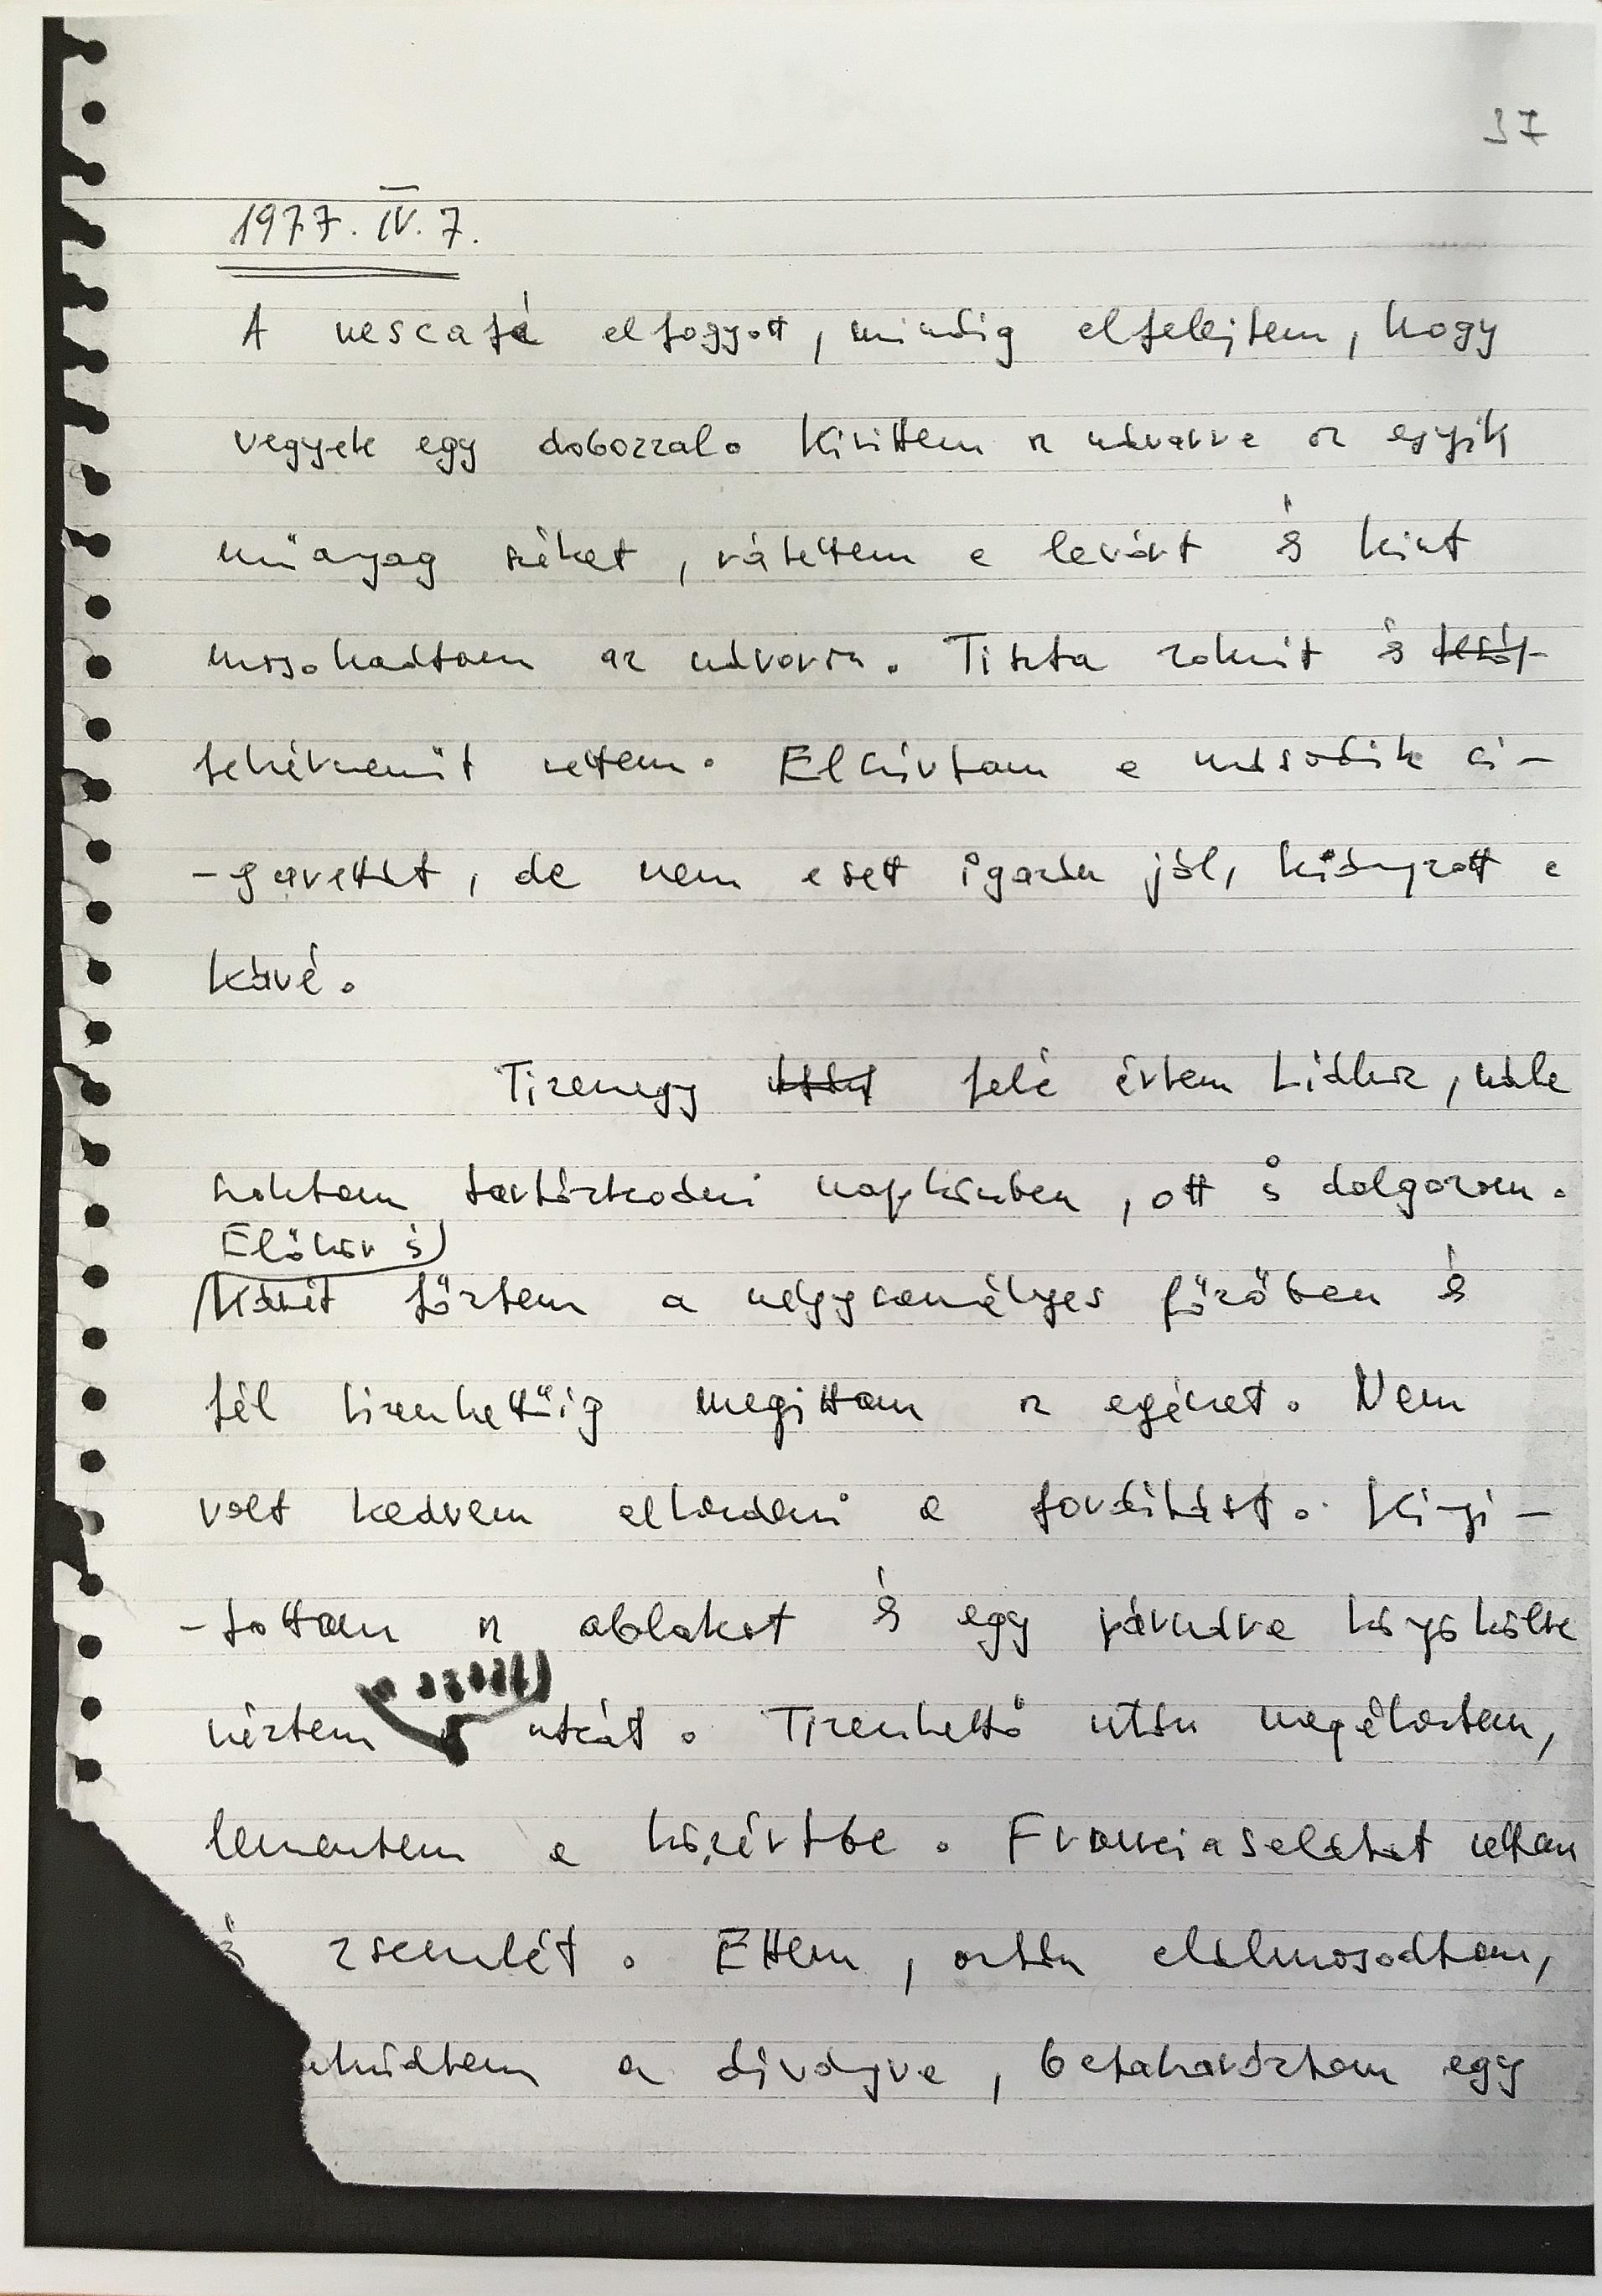 37
1977. IV. 7.
A nescafé elfogyott, mindig elfelejtem, hogy
vegyek egy dobozzal. Kivittem az udvarra az egyik
műanyag széket, rátettem a lavórt és kint
mosakodtam az udvaron. Tiszta zoknit és
fehérneműt vettem. Elszívtam a második ci-
-garettát, de nem esett igazán jól, hiányzott a
kávé.
Tizenegy felé értem Lídihez, nála
szoktam tartózkodni napközben, ott is dolgozom.
Először is
kávét főztem a négyszemélyes főzőben és
fél tizenkettőig megittam az egészet. Nem
volt kedvem elkezdeni a fordítást. Kinyi-
-tottam az ablakot és egy párnára könyökölve
néztem az utcát. Tizenkettő után megéheztem,
lementem a közértbe. Franciasalátát vettem
és zsemlét. Ettem, aztán elálmosodtam,
a díványra, betakaróztam egy